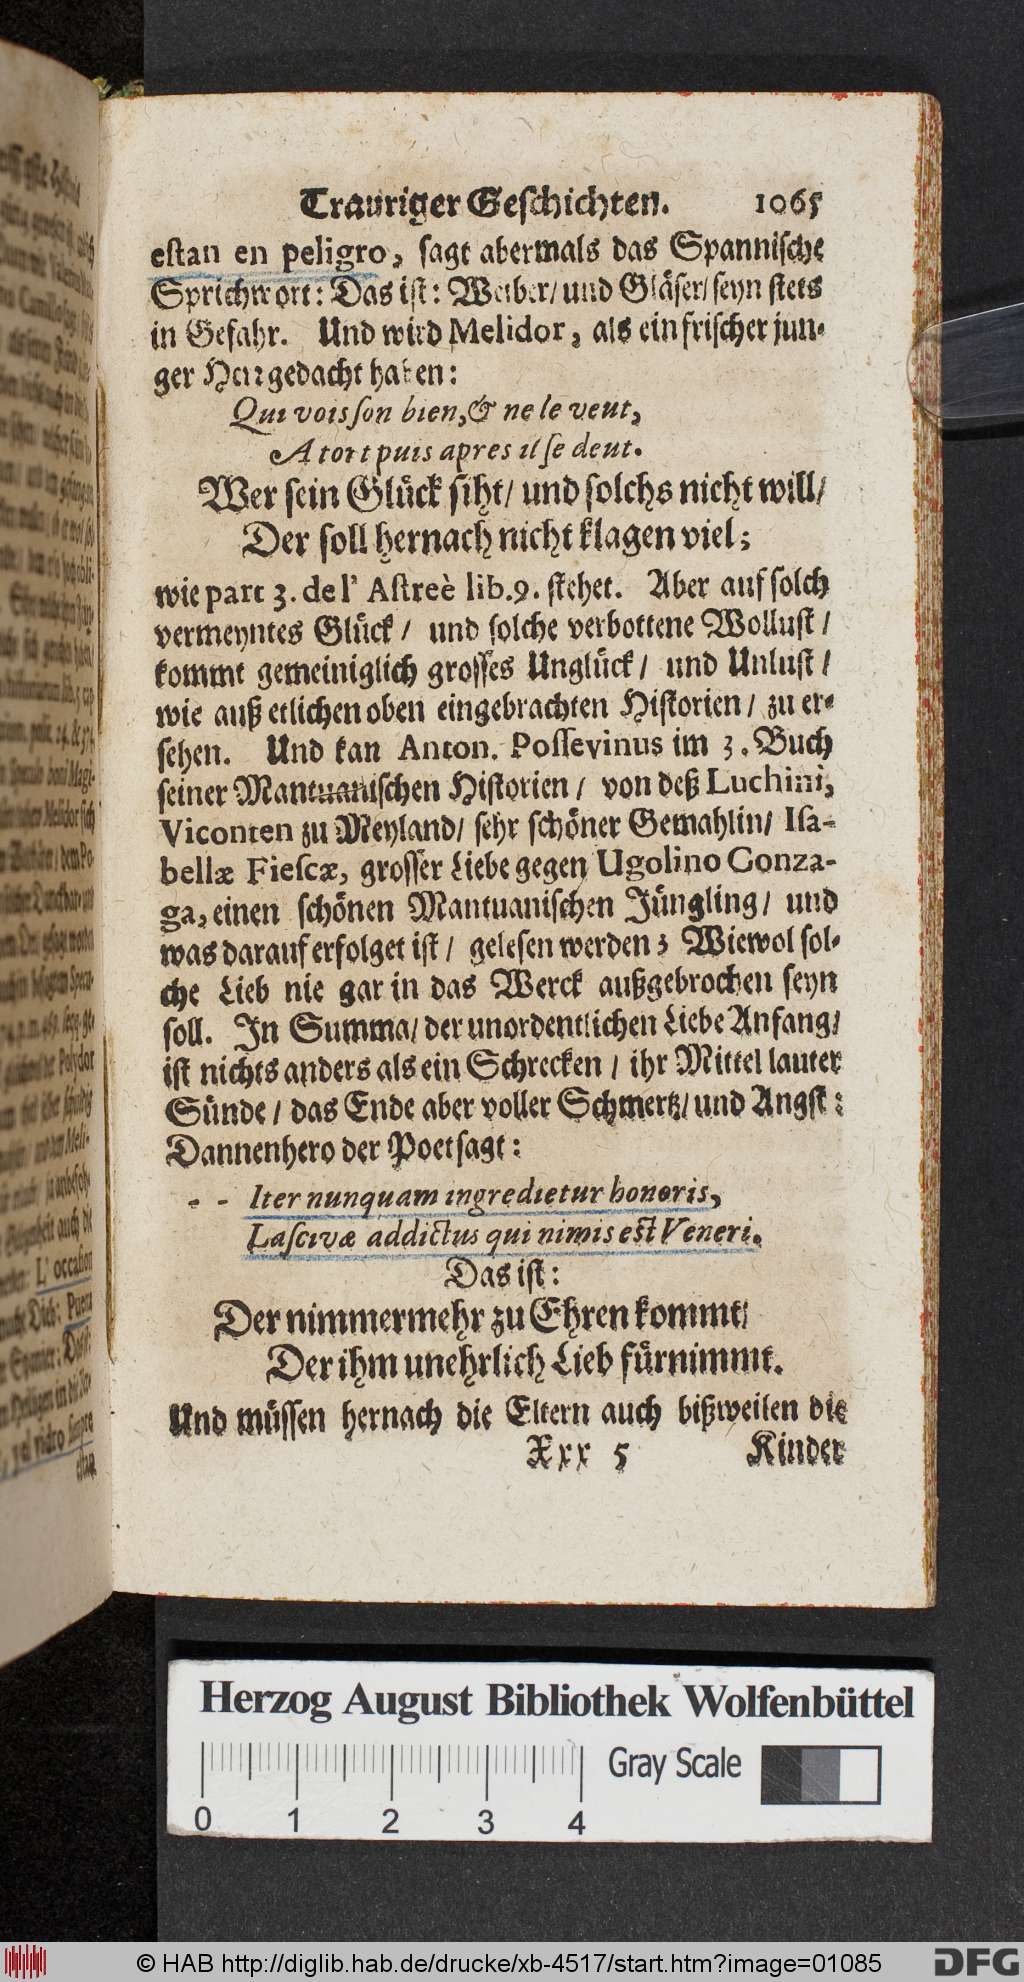 Trauriger Geſchichten. 1065
eſtan en peligro, ſagt abermals das Spanniſche
Sprichwort: Das iſt: Weiber/ und Gläſer/ ſeyn ſtets
in Gefahr. Und wird Melidor, als ein friſcher jun-
ger Herr gedacht haben:
Qui vois ſon bien, & ne le veut,
A tort puis apres il ſe deut.
Wer ſein Glück ſiht/ und ſolchs nicht will/
Der ſoll hernach nicht klagen viel;
wie part 3. de l' Aſtreè lib.9. ſtehet. Aber auf ſolch
vermeyntes Glück/ und ſolche verbottene Wolluſt/
kommt gemeiniglich groſſes Unglück/ und Unluſt/
wie auß etlichen oben eingebrachten Hiſtorien/ zu er-
ſehen. Und kan Anton. Poſſevinus im 3. Buch
ſeiner Mantuaniſchen Hiſtorien/ von deß Luchini,
Viconten zu Meyland/ ſehr ſchöner Gemahlin/ Iſa-
bellæ Fieſcæ, groſſer Liebe gegen Ugolino Gonza-
ga, einen ſchönen Mantuaniſchen Jüngling/ und
was darauf erfolget iſt/ geleſen werden; Wiewol ſol-
che Lieb nie gar in das Werck außgebrochen ſeyn
ſoll. In Summa/ der unordentlichen Liebe Anfang/
iſt nichts anders als ein Schrecken/ ihr Mittel lauter
Sünde/ das Ende aber voller Schmertz/ und Angſt:
Dannenhero der Poet ſagt:
- - Iter nunquam ingredietur honoris,
Laſcivæ addictus qui nimis eſt Veneri.
Das iſt:
Der nimmermehr zu Ehren kommt/
Der ihm unehrlich Lieb fürnimmt.
Und müſſen hernach die Eltern auch bißweilen die
Xxx 5 Kinder
L' occaſion
Puerta
vidro ſempre
eſtan
Herzog August Bibliothek Wolfenbüttel
Gray Scale
0 1 2 3 4
© HAB http://diglib.hab.de/drucke/xb-4517/start.htm?image=01085
DFG